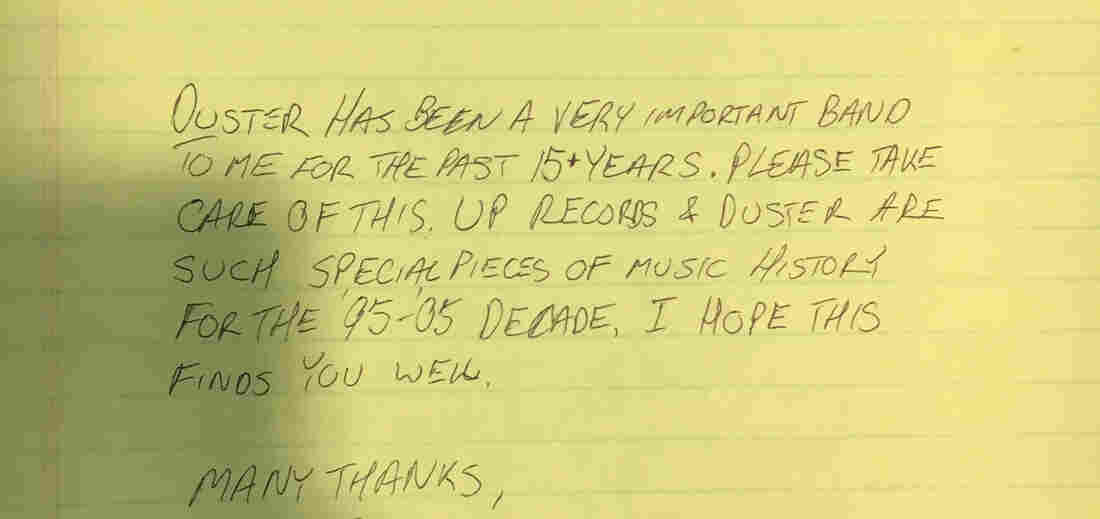 DUSTER HAS BEEN A VERY IMPORTANT BAND
TO ME FOR THE PAST 15+ YEARS. PLEASE TAKE
CARE OF THIS. UP RECORDS & DUSTER ARE
SUCH SPECIAL PIECES OF MUSIC HISTORY
FOR THE '95-'05 DECADE. I HOPE THIS
FINDS YOU WELL.
MANY THANKS,